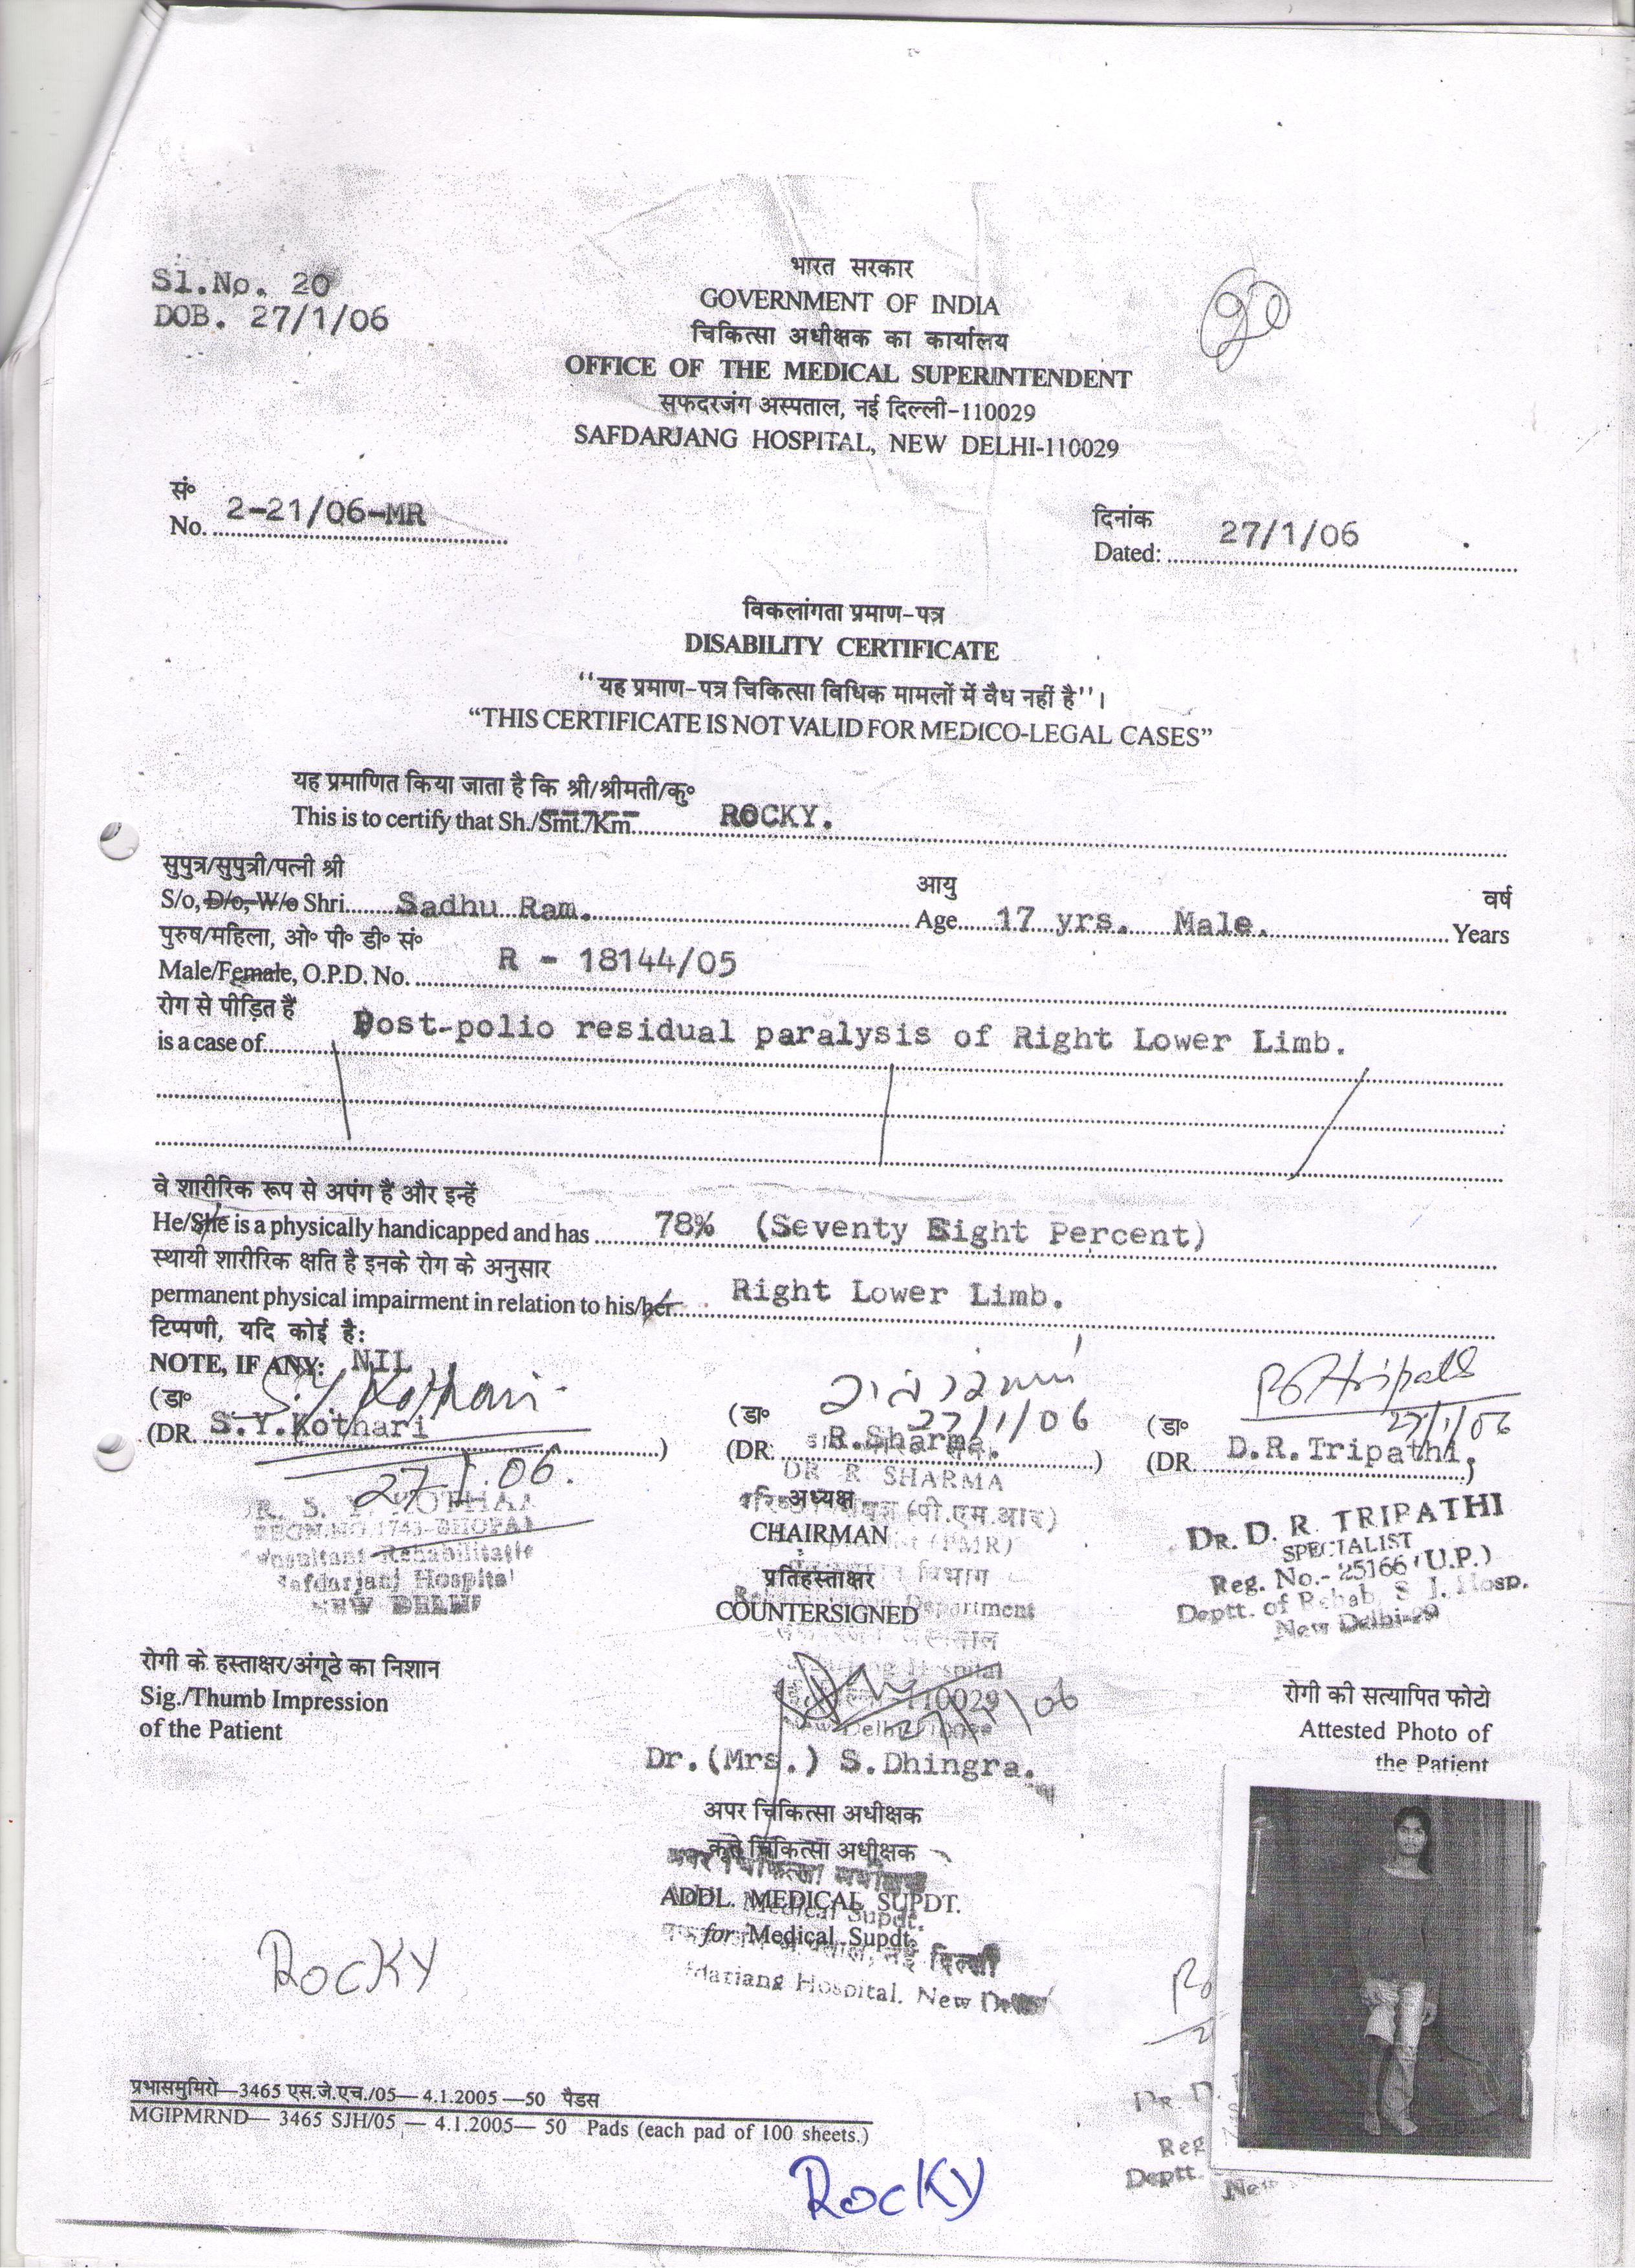 Sl.No. 20
DOB. 27/1/06
20
भारत सरकार
GOVERNMENT OF INDIA
चिकित्सा अधीक्षक का कार्यालय
OFFICE OF THE MEDICAL SUPERINTENDENT
सफदरजंग अस्पताल, नई दिल्ली-110029
SAFDARJANG HOSPITAL, NEW DELHI-110029
सं०
No. 2-21/06-MR
दिनांक
Dated: 27/1/06
विकलांगता प्रमाण-पत्र
DISABILITY CERTIFICATE
''यह प्रमाण-पत्र चिकित्सा विधिक मामलों में वैध नहीं है''।
"THIS CERTIFICATE IS NOT VALID FOR MEDICO-LEGAL CASES"
यह प्रमाणित किया जाता है कि श्री/श्रीमती/कु०
This is to certify that Sh./Smt./Km. ROCKY.
सुपुत्र/सुपुत्री/पत्नी श्री आयु वर्ष
S/o, D/o, W/o Shri Sadhu Ram. Age 17 yrs. Male. Years
पुरुष/महिला, ओ० पी० डी० सं०
Male/Female, O.P.D. No. R - 18144/05
रोग से पीड़ित हैं
is a case of Post-polio residual paralysis of Right Lower Limb.
वे शारीरिक रूप से अपंग हैं और इन्हें
He/She is a physically handicapped and has 78% (Seventy Eight Percent)
स्थायी शारीरिक क्षति है इनके रोग के अनुसार
permanent physical impairment in relation to his/her Right Lower Limb.
टिप्पणी, यदि कोई है:
NOTE, IF ANY: NIL
S.Y. Kothari
(डा०
(DR. S.Y.Kothari)
27.1.06.
27/1/06
(डा०
(DR. R.Sharma.)
27/1/06
(डा०
(DR. D.R.Tripathi.)
DR. S. Y. KOTHARI
REGN.NO.1743-BHOPAL
Consultant Rehabilitatie
Safdarjanj Hospital
NEW DELHI
DR R SHARMA
अध्यक्ष
(पी.एम.आर)
CHAIRMAN
(PMR)
प्रतिहस्ताक्षर
विभाग
COUNTERSIGNED
Department
DR. D. R. TRIPATHI
SPECIALIST
Reg. No.- 25166 (U.P.)
Deptt. of Rehab, S. J. Hosp.
New Delhi-29
रोगी के हस्ताक्षर/अंगूठे का निशान
Sig./Thumb Impression
of the Patient
Hospital
110029
Dr.(Mrs.) S.Dhingra.
अपर चिकित्सा अधीक्षक
कृते चिकित्सा अधीक्षक
ADDL. MEDICAL SUPDT.
Medical Supdt.
for Medical Supdt.
नई दिल्ली
Hospital. New Delhi
रोगी की सत्यापित फोटो
Attested Photo of
the Patient
ROCKY
DR. D.
Reg
Deptt.
New
प्रभासमुमिरो—3465 एस.जे.एच./05— 4.1.2005 —50 पैडस
MGIPMRND— 3465 SJH/05 — 4.1.2005— 50 Pads (each pad of 100 sheets.)
ROCKY